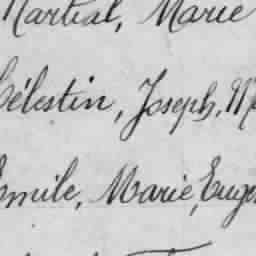 Martial, Marie
Célestin, Joseph, M
Emile, Marie, Euge